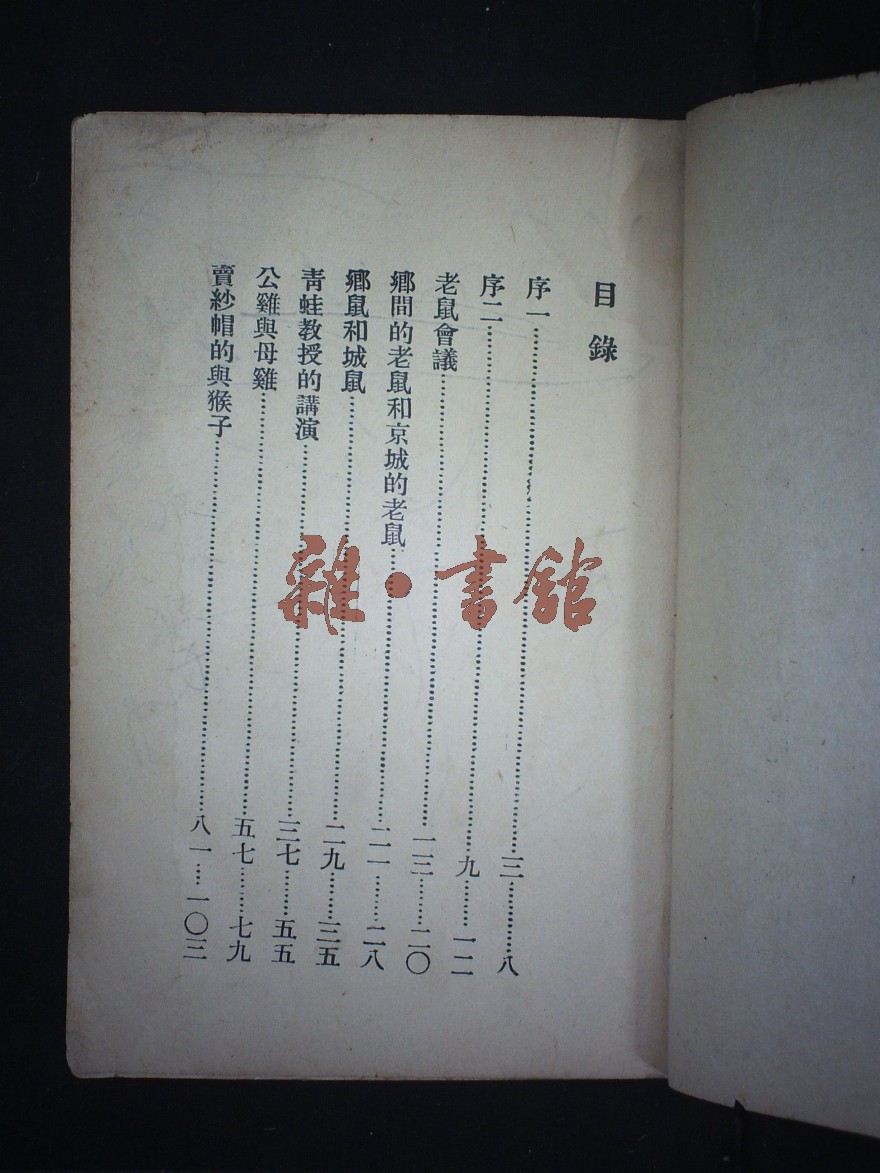 目錄
序一……三……八
序二……九……一二
老鼠會議……一三……二〇
鄉間的老鼠和京城的老鼠……二一……二八
鄉鼠和城鼠……二九……三五
青蛙教授的講演……三七……五五
公雞與母雞……五七……七九
賣紗帽的與猴子……八一……一〇三
雜·書館